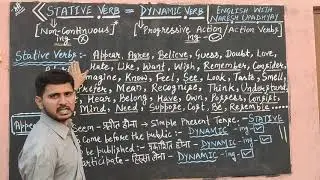 STATIVE VERB = DYNAMIC VERB
ENGLISH WITH
NARESH UPADHYAY
[Non-Continuous] [Progressive Action/Action Verbs]
ing ing
Stative Verbs:- Appear, Agree, Believe, Guess, Doubt, Love,
Hate, Like, Want, Wish, Remember, Consider,
Imagine, Know, Feel, See, Look, Taste, Smell,
Prefer, Mean, Recognise, Think, Understand,
Hear, Belong, Have, Own, Possess, Consist,
Mind, Need, Support, Cost, Be, Resemble
Appear Seem - प्रतीत होना - Simple Present Tense - STATIVE
Come before the public: - DYNAMIC - ing -
To be published: - प्रकाशित होना - DYNAMIC - ing -
Participate - हिस्सा लेना - DYNAMIC - ing -